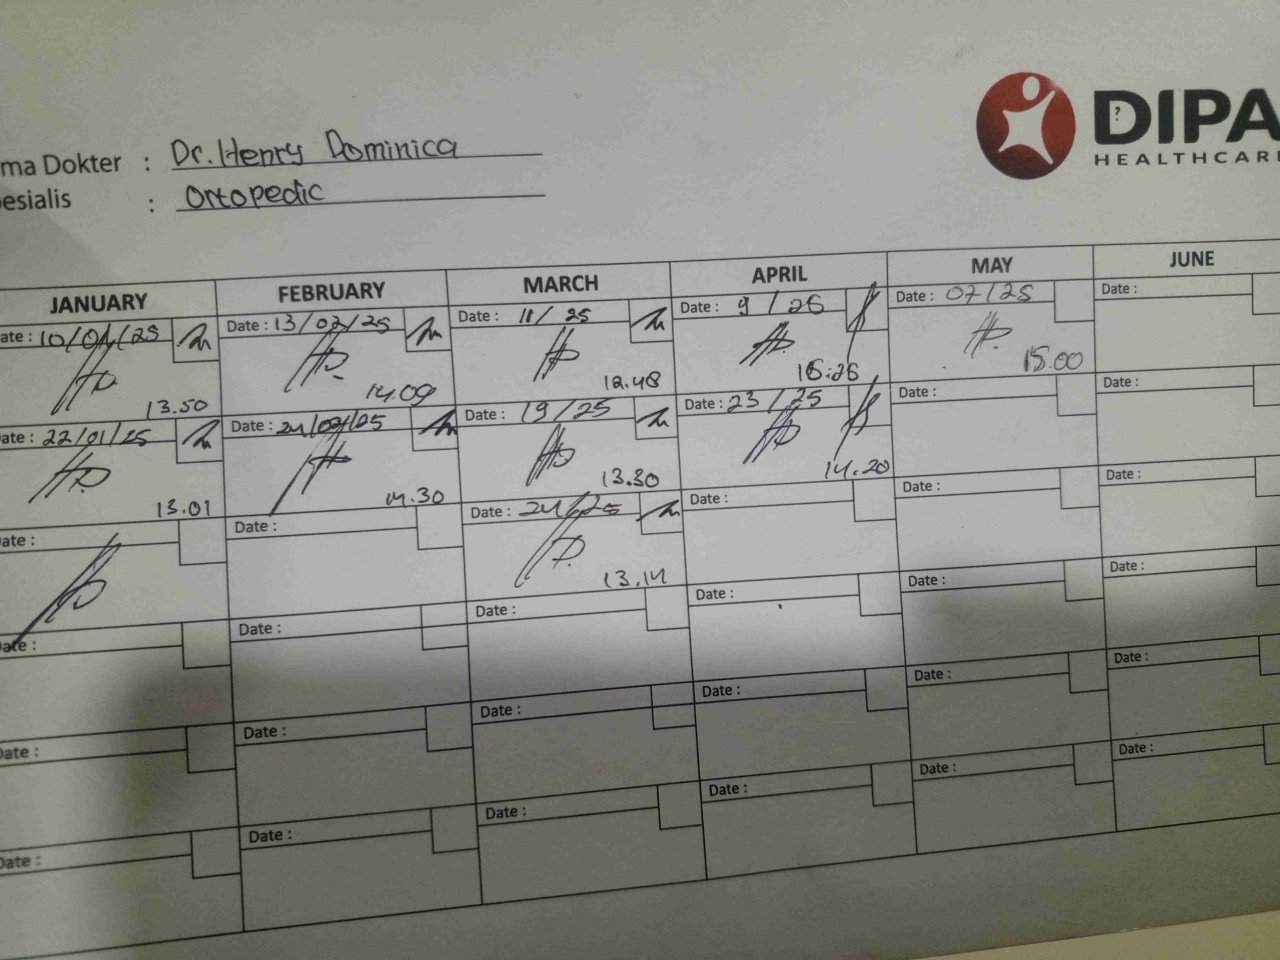 DIPA
HEALTHCARE
ma Dokter : Dr. Henry Dominica
esialis : Ortopedic
JANUARY FEBRUARY MARCH APRIL MAY JUNE
ate : 10/01/25 Date : 13/02/25 Date : 11/25 Date : 9/25 Date : 07/25 Date :
13.50 14.09 12.48 15.00
ate : 22/01/25 Date : 24/02/25 Date : 19/25 Date : 23/25 Date : Date :
13.01 14.30 13.30 14.20
ate : Date : Date : 24/25 Date : Date : Date :
13.14
ate : Date : Date : Date : Date : Date :
ate : Date : Date : Date : Date : Date :
ate : Date : Date : Date : Date : Date :